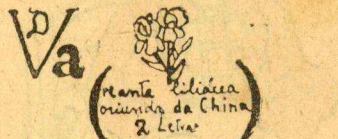 D
Va
(planta liliácea
oriunda da China
2 Letras)